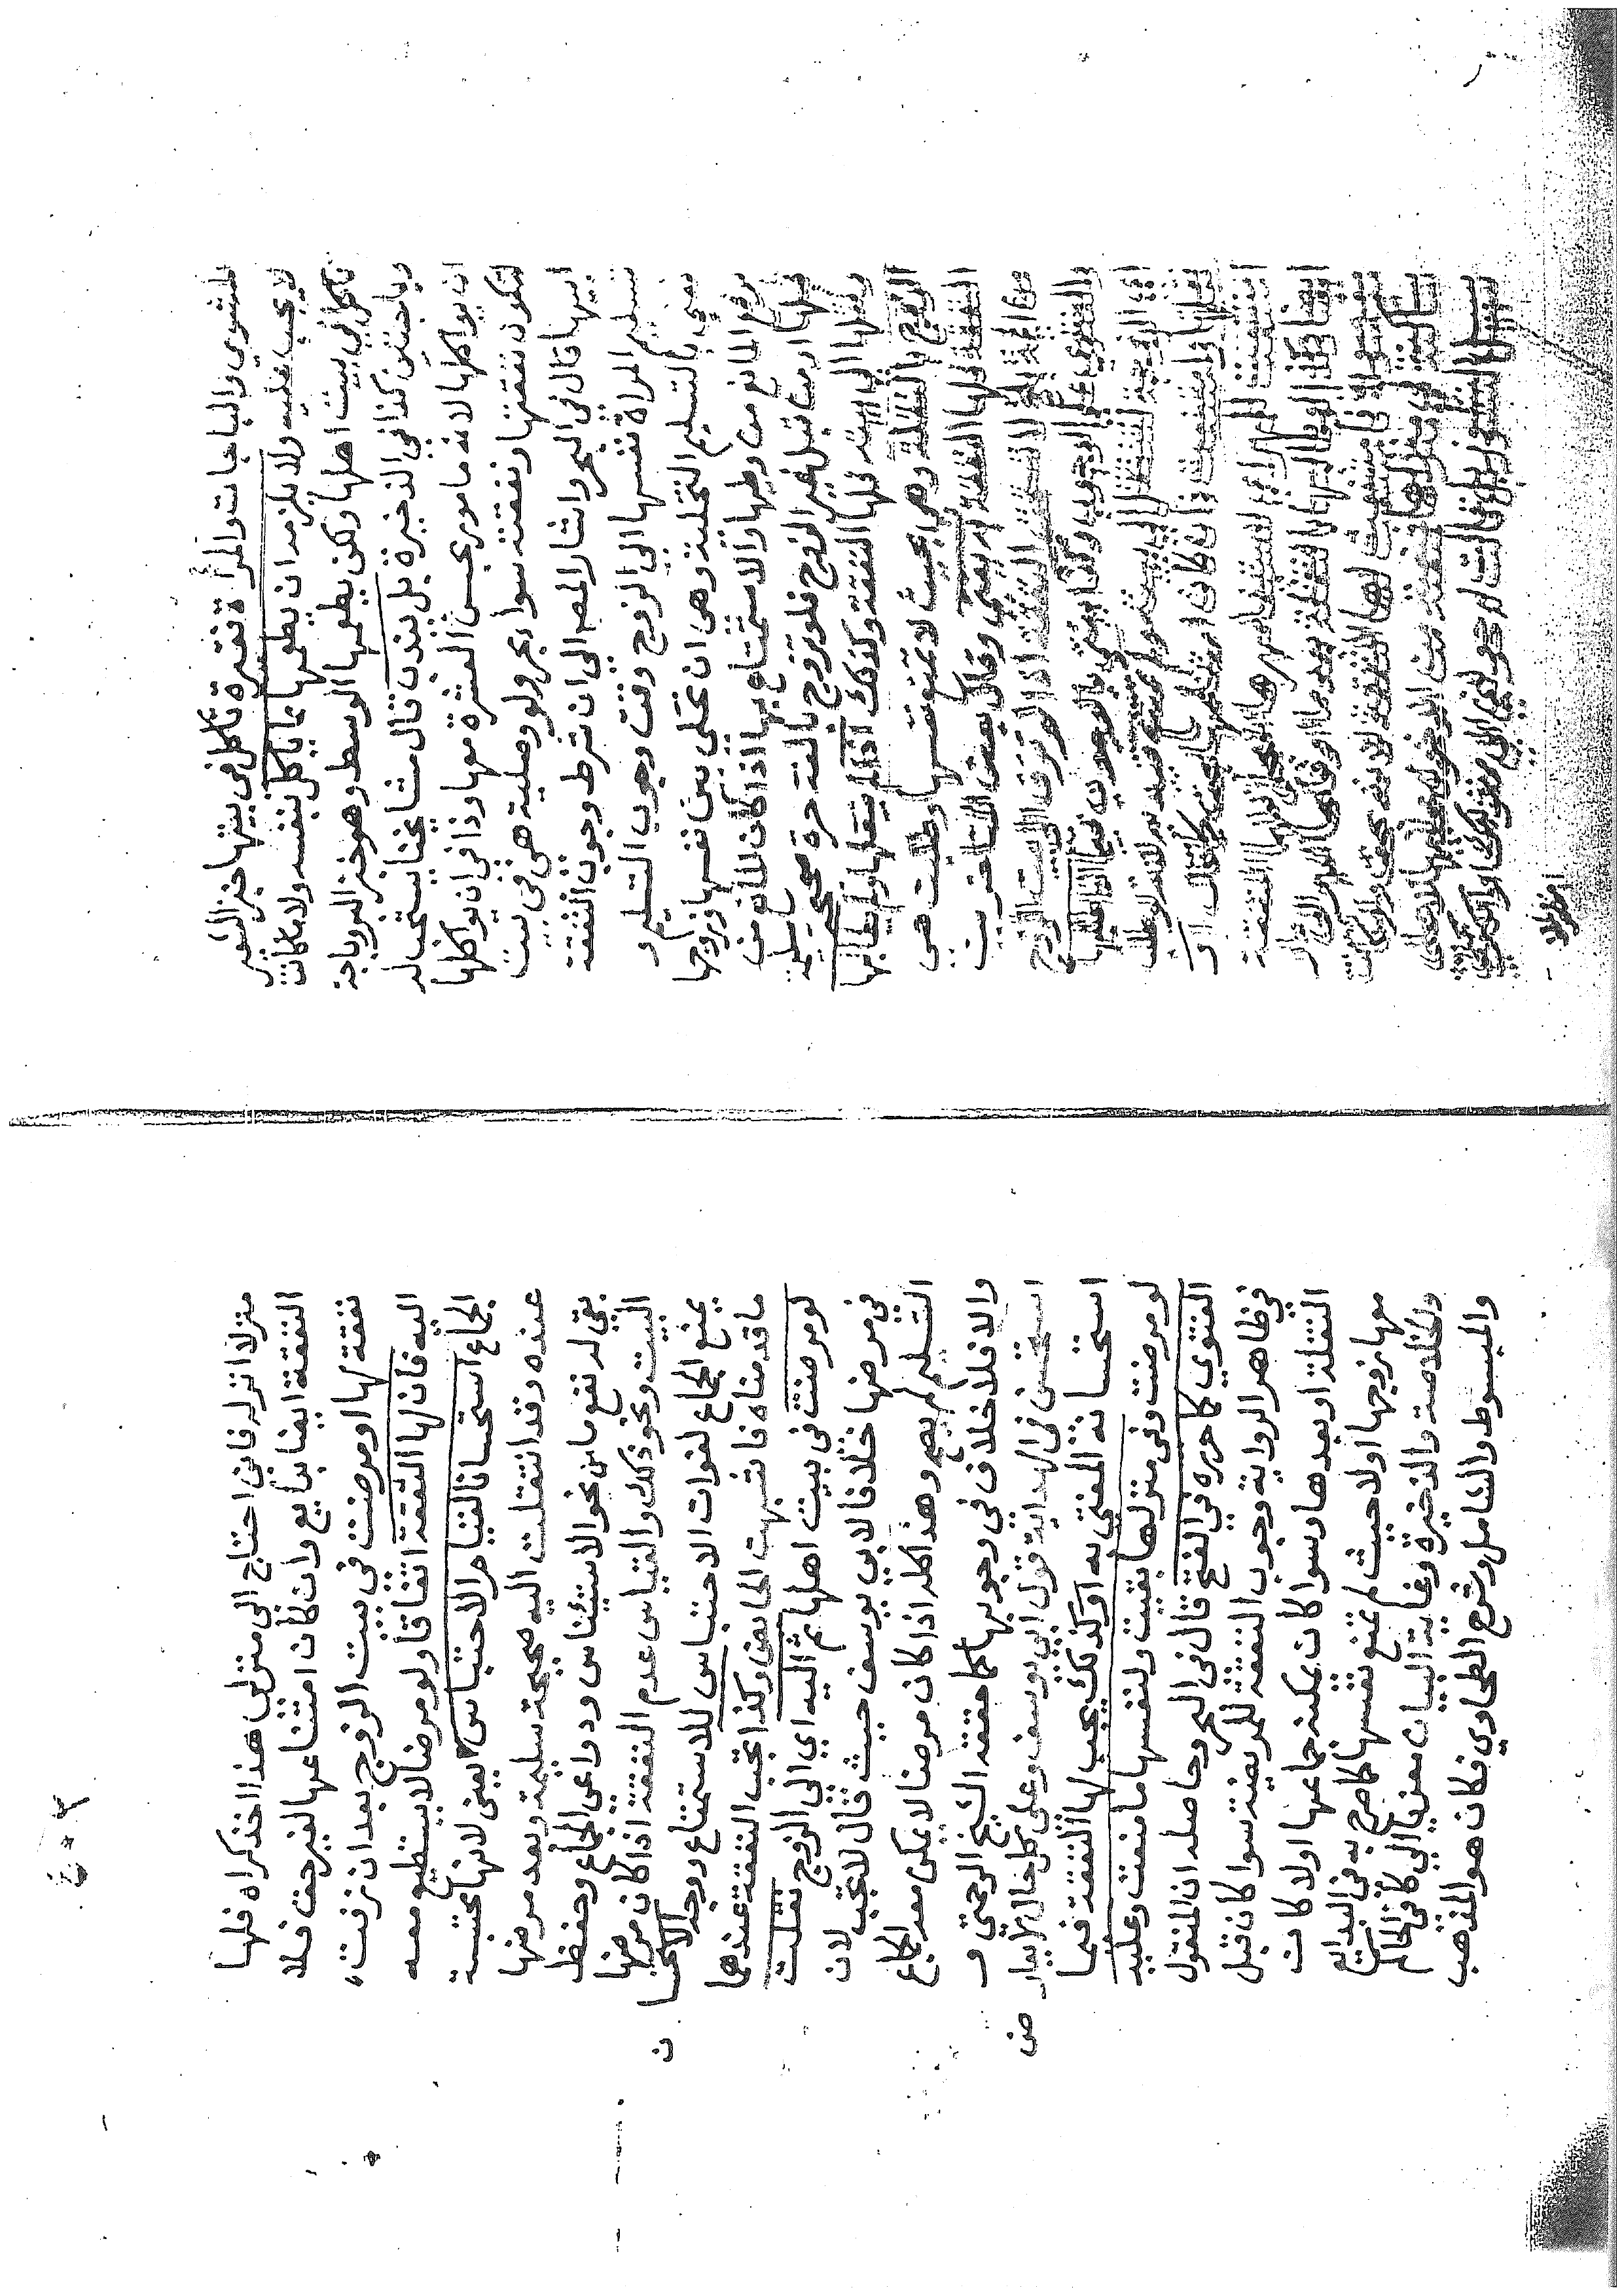 المشوي والباجات والمرأة فقيرة تأكل في بيتها خبز الشعير
لا يجب عليه ولا يلزمه ان يطعمها مما ياكل بنفسه ولا ما كانت
تأكل في بيت اهلها ولكن يطعمها الوسط وهو خبز البر وباجة
وباجتين كذا في الذخيرة بل يندب قال مشايخنا يستحب له
ان يواكلها لانه مامور بحسن العشرة معها وذا في ان يواكلها
لتكون نفقتها ونفقته سواء بحر ولو وصلية هي في بيت
ابيها قال في البحر واشار المص الى ان شرط وجوب النفقة
تسليم المرأة نفسها الى الزوج وقت وجوب التسليم و
نعني بالتسليم التخلية وهي ان تخلي بين نفسها وزوجها
برفع المانع من وطيها والاستمتاع بها اذا كان المانع من
قبلها او من قبل غير الزوج فلو تزوج بالغة حرة صحيحة سليمة
ونقلها الى بيته فلها النفقة وكذلك اذا لم ينقلها ولم يطالبها
الزوج بالنقلة وهي بحيث لا تمنع نفسها وطلبت هي
النفقة فلها النفقة به يفتى وقال بعض المتاخرين
من ائمة بلخ لا تستحق النفقة اذا لم تزف الى بيت الزوج
والفتوى على الوجوب وكذا
اي الزوجة لتنتقل الى بيته ولم تمتنع فيه
ابوها ولم تمتنع فانه كان امتناعها بحق
استوفت المهر او لم تستوف مهرها المعجل فلها النفقة
ايضا وكذا لو طالبها بالنقلة بعد ما اوفاها المهر الى دار
مغصوبة فامتنعت لها النفقة لانه بحق ولو كانت
ساكنة في منزلها فمنعته من الدخول عليها لا على
سبيل النشوز بل قالت له حولني الى منزلك او اكتري
منزلا انزله فاني احتاج الى منزلي هذا اخذ كراه فلها
النفقة ايضا بدايع وان كان امتناعها لغير حق فلا
نفقة لها او مرضت في بيت الزوج بعد ان زفت
اليه فان لها النفقة اتفاقا ولو مرضا لا يستطيع معه
الجماع استحسانا لقيام الاحتباس يعني لانها محتبسة
عنده وقد انتقلت اليه صحيحة سليمة وبعد مرضها
بقي له نفع ما من نحو الاستيناس ودواعي الجماع وحفظ
البيت ونحو ذلك والقياس عدم النفقة اذا كان مرضها
يمنع الجماع لفوات الاحتباس للاستمتاع ووجه الاستحسان
ما قدمناه فاشبهت الحايض وكذا تجب النفقة عندهما
لو مرضت في بيت اهلها ثم اليه اي الى الزوج نقلت
في مرضها خلافا لابي يوسف حيث قال لا تجب لان
التسليم لم يصح وهذا كله اذا كان مرضا لا يمكن معه الجماع
والا فلا خلاف في وجوبها كما حققه الشيخ الرحمتي و
استحسن في الهداية قول ابي يوسف وعلى كل حال
استحسانه المفتى به او كذلك يجب لها النفقة فيما
لو مرضت وفي منزلها بقيت ولنفسها ما منعت وعليه
الفتوى كما حرره في الفتح قال في البحر وحاصله ان المنقول
في ظاهر الرواية وجوب النفقة للمريضة سوا كان قبل
النقلة او بعدها وسوا كان يمكنه جماعها او لا كان
معها زوجها او لا حيث لم تمنع نفسها كما صرح به في البدايع
والخلاصة والذخيرة وغاية البيان معزيا الى كافي الحاكم
والمبسوط والشامل وشرح الطحاوي فكان هو المذهب